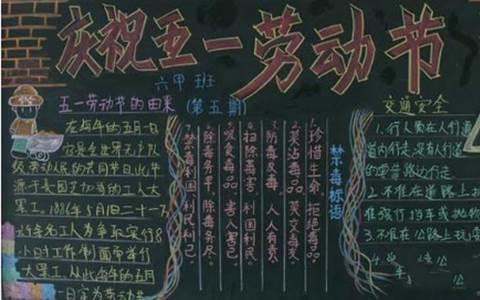 庆祝五一劳动节
六甲班
(第五期)
五一劳动节的由来
在每年的五月一日
是全世界无产
级劳动人民的共同节日,此节
源于美国芝加哥的工人大
罢工,1886年5月1日二十一万
为争取实行8
小时工作制而举行
大罢工,从此每年的五月
一日定为劳动节
1.珍惜生命,拒绝毒品。
2.莫沾毒品,莫交毒友
3.防毒反毒,人人有责
4.扫除毒害,利国利民
5.吸食毒品,害人害己
6.除毒务早,除毒务尽
7.禁毒利国利民利己
禁毒标语
交通安全
1.行人须在人行道
道内行走,没有人行道
的要靠路边行走
2.不准在道路上扒
强行拦车或抛物
3.不准在公路上玩耍
4.